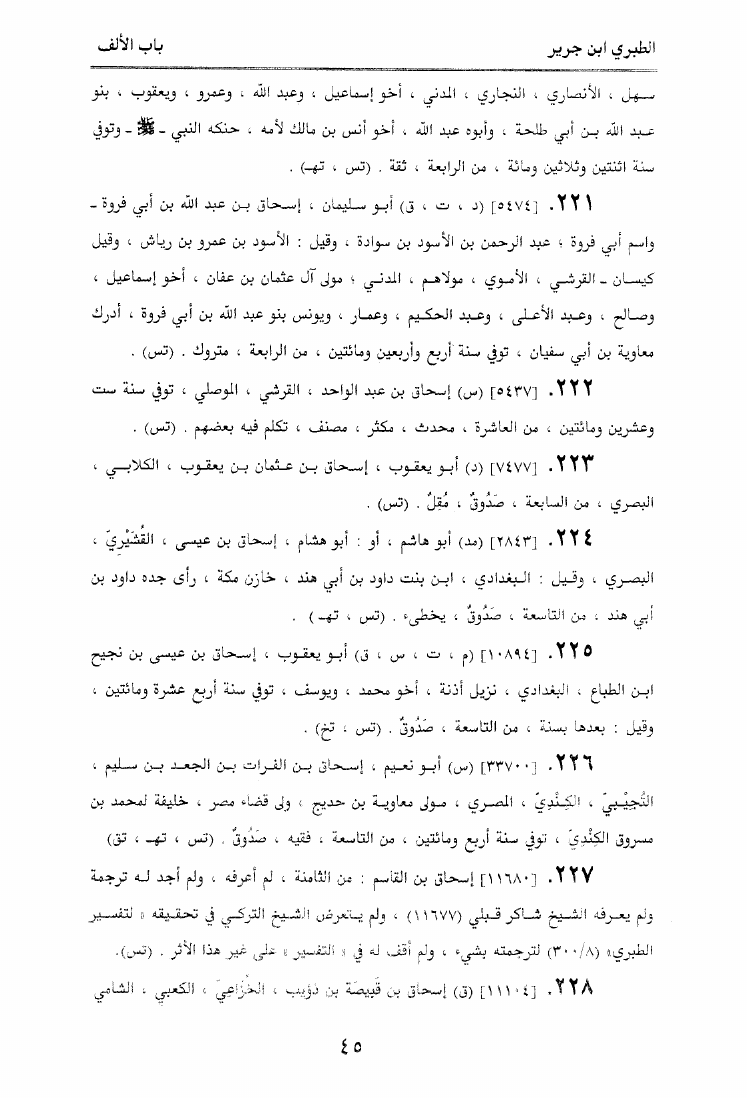 الطبري ابن جرير
باب الألف
سهل ، الأنصاري ، النجاري ، المدني ، أخو إسماعيل ، وعبد الله ، وعمرو ، ويعقوب ، بنو
عبد الله بن أبي طلحة ، وأبوه عبد الله ، أخو أنس بن مالك لأمه ، حنكه النبي - ﷺ - وتوفي
سنة اثنتين وثلاثين ومائة ، من الرابعة ، ثقة . (تس ، تهـ) .
٢٢١. [٥٤٧٤] (د ، ت ، ق) أبو سليمان ، إسحاق بن عبد الله بن أبي فروة -
واسم أبي فروة ؛ عبد الرحمن بن الأسود بن سوادة ، وقيل : الأسود بن عمرو بن رياش ، وقيل
كيسان - القرشي ، الأموي ، مولاهم ، المدني ؛ مولى آل عثمان بن عفان ، أخو إسماعيل ،
وصالح ، وعبد الأعلى ، وعبد الحكيم ، وعمار ، ويونس بنو عبد الله بن أبي فروة ، أدرك
معاوية بن أبي سفيان ، توفي سنة أربع وأربعين ومائتين ، من الرابعة ، متروك . (تس) .
٢٢٢. [٥٤٣٧] (س) إسحاق بن عبد الواحد ، القرشي ، الموصلي ، توفي سنة ست
وعشرين ومائتين ، من العاشرة ، محدث ، مكثر ، مصنف ، تكلم فيه بعضهم . (تس) .
٢٢٣. [٧٤٧٧] (د) أبو يعقوب ، إسحاق بن عثمان بن يعقوب ، الكلابي ،
البصري ، من السابعة ، صَدُوقٌ ، مُقِلٌ . (تس) .
٢٢٤. [٢٨٤٣] (مد) أبو هاشم ، أو : أبو هشام ، إسحاق بن عيسى ، القُشَيْرِيّ ،
البصري ، وقيل : البغدادي ، ابن بنت داود بن أبي هند ، خازن مكة ، رأى جده داود بن
أبي هند ، من التاسعة ، صَدُوقٌ ، يخطىء . (تس ، تهـ) .
٢٢٥. [١٠٨٩٤] (م ، ت ، س ، ق) أبو يعقوب ، إسحاق بن عيسى بن نجيح
ابن الطباع ، البغدادي ، نزيل أذنة ، أخو محمد ، ويوسف ، توفي سنة أربع عشرة ومائتين ،
وقيل : بعدها بسنة ، من التاسعة ، صَدُوقٌ . (تس ، تخ) .
٢٢٦. [٣٣٧٠٠] (س) أبو نعيم ، إسحاق بن الفرات بن الجعد بن سليم ،
التُّجِيْبِيّ ، الكِنْدِيّ ، المصري ، مولى معاوية بن حديج ، ولى قضاء مصر ، خليفة لمحمد بن
مسروق الكِنْدِيّ ، توفي سنة أربع ومائتين ، من التاسعة ، فقيه ، صَدُوقٌ . (تس ، تهـ ، تق)
٢٢٧. [١١٦٨٠] إسحاق بن القاسم : من الثامنة ، لم أعرفه ، ولم أجد له ترجمة
ولم يعرفه الشيخ شاكر قبلي (١١٦٧٧) ، ولم يتعرض الشيخ التركي في تحقيقه « لتفسير
الطبري» (٣٠٠/٨) لترجمته بشيء ، ولم أقف له في « التفسير » على غير هذا الأثر . (تس).
٢٢٨. [١١١٠٤] (ق) إسحاق بن قَبِيصَة بن ذؤيب ، الخُزَاعِيّ ، الكعبي ، الشامي
٤٥